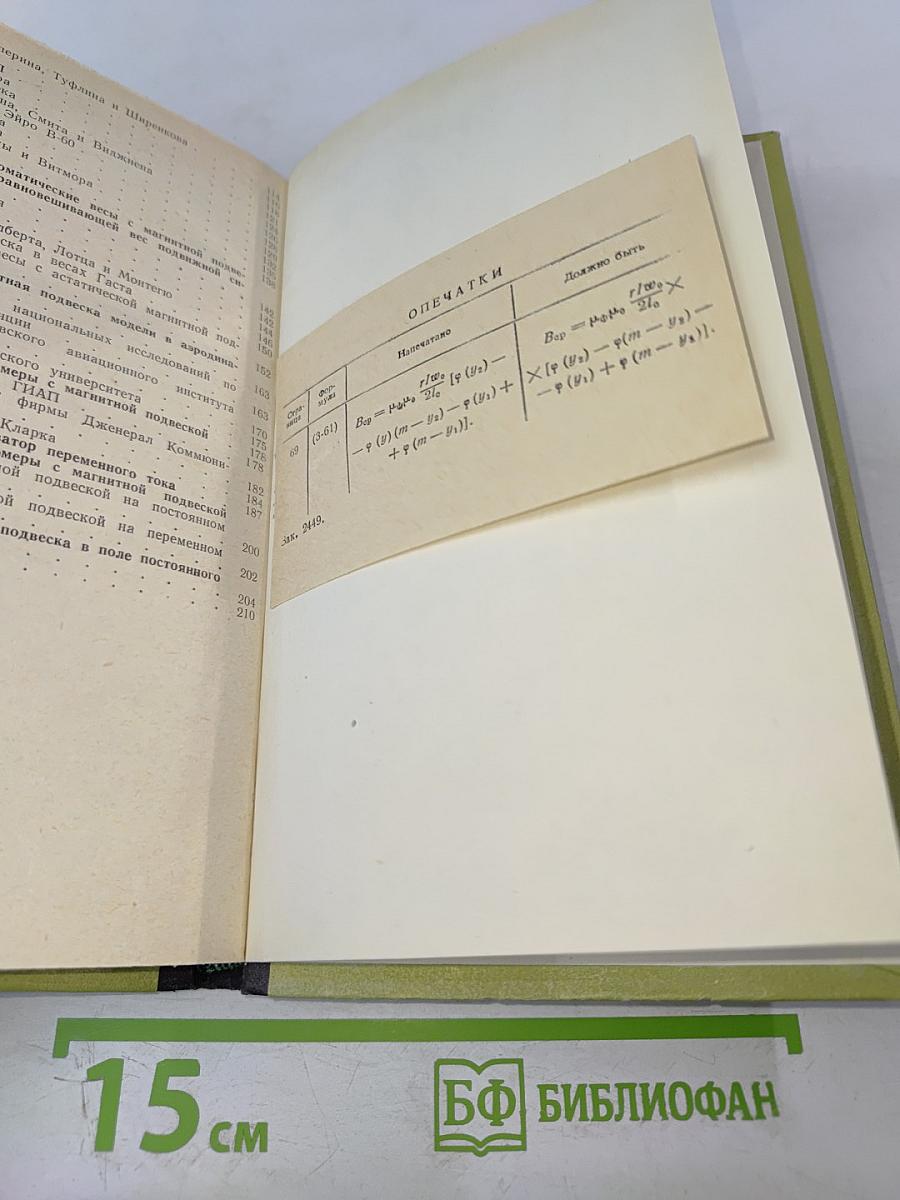 перина, Туфлина и Ширенкова
на, Смита и Виджнепа
Эйро В-60
ы и Витмора
томатические весы с магнитной подве-
равновешивающей вес подвижной си-
лберта, Лотца и Монтегю
ска в весах Гаста
весы с астатической магнитной под-
тная подвеска модели в аэродина-
национальных исследований по
вского авиационного института
ского университета
меры с магнитной подвеской
ГИАП
фирмы Дженерал Коммюни-
Кларка
затор переменного тока
омеры с магнитной подвеской
ной подвеской на постоянном
ой подвеской на переменном
подвеска в поле постоянного
138
142
142
144
146
150
152
163
163
170
175
178
178
182
184
187
200
202
204
210
ОПЕЧАТКИ
Стра-
ница
Фор-
мула
Напечатано
Должно быть
69
(3-61)
Bср = μфμ0 rIw0/2l0 [φ (y2) —
— φ (y) (m — y2) — φ (y1) +
+ φ (m — y1)].
Bср = μфμ0 rIw0/2l0 ×
× [φ (y2) — φ(m — y2) —
— φ (y1) + φ (m — y1)].
Зак. 2449.
15 см
БФ БИБЛИОФАН